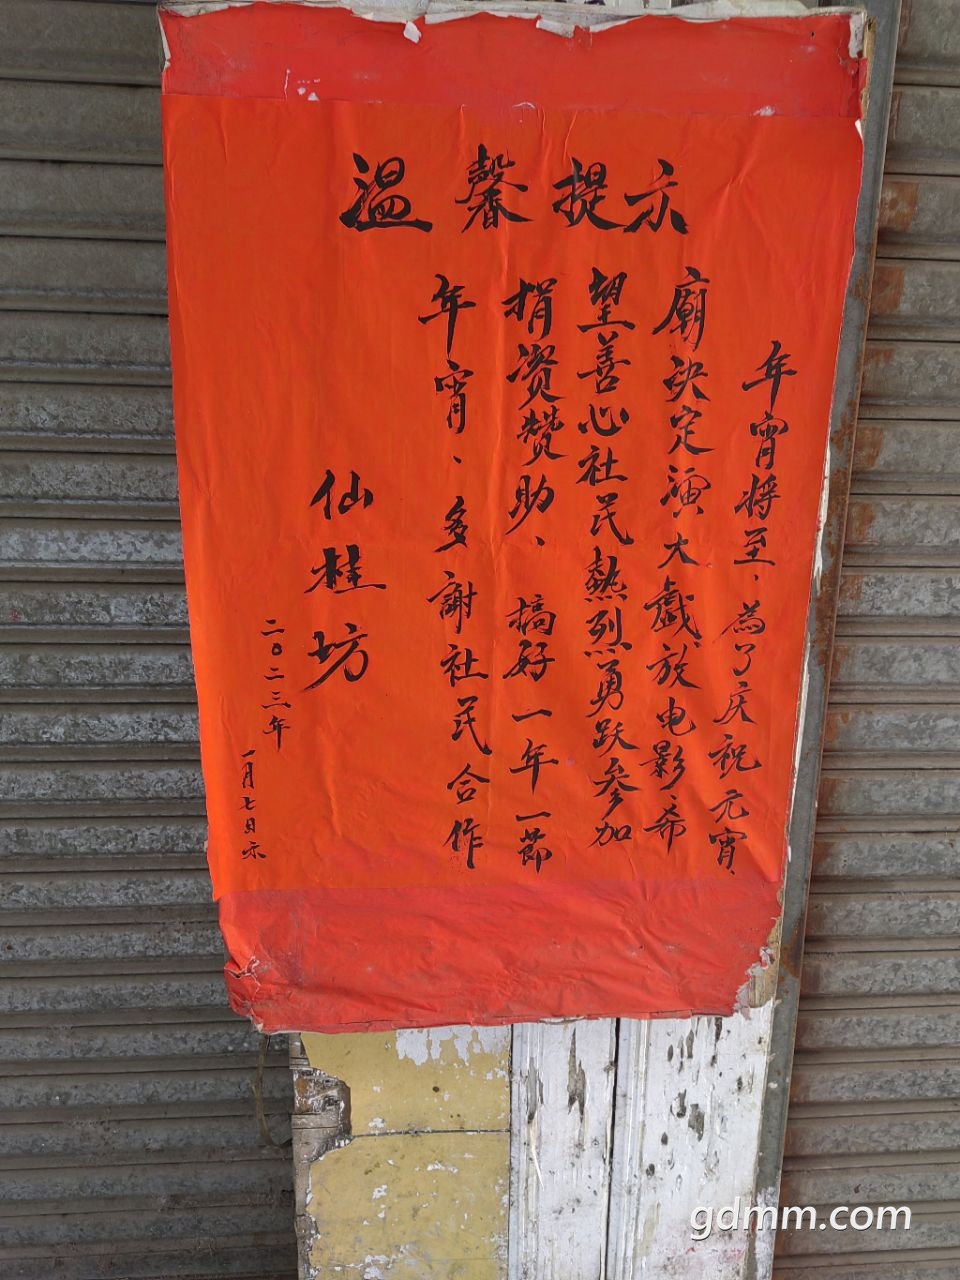 温馨提示
年宵将至、為了庆祝元宵、
廟決定演大戲、放电影、希
望善心社民熱烈勇跃参加
捐资赞助、搞好一年一節
年宵、多謝社民合作
仙桂坊
二〇二三年
一月七日示
gdmm.com